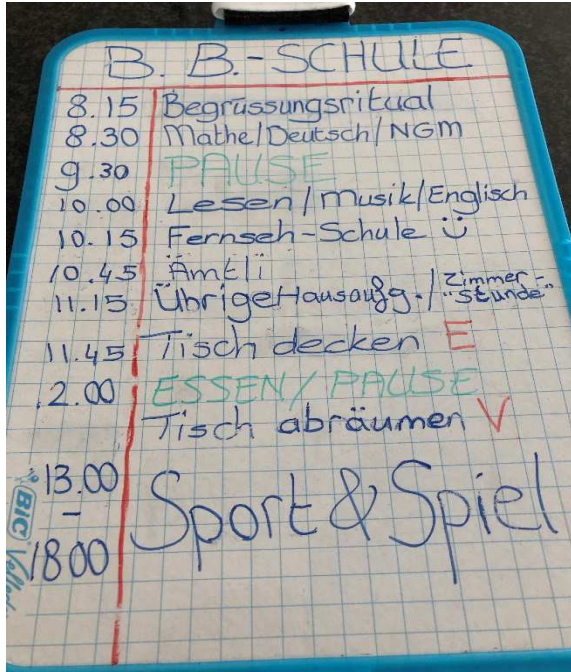 B. B.-SCHULE
8.15 Begrüssungsritual
8.30 Mathe/Deutsch/NGM
9.30 PAUSE
10.00 Lesen/Musik/Englisch
10.15 Fernseh-Schule
10.45 Ämtli
11.15 Übrige Hausaufg./Zimmer-
"Stunde"
11.45 Tisch decken E
2.00 ESSEN/PAUSE
Tisch abräumen V
13.00
-
18.00
Sport & Spiel
BIC